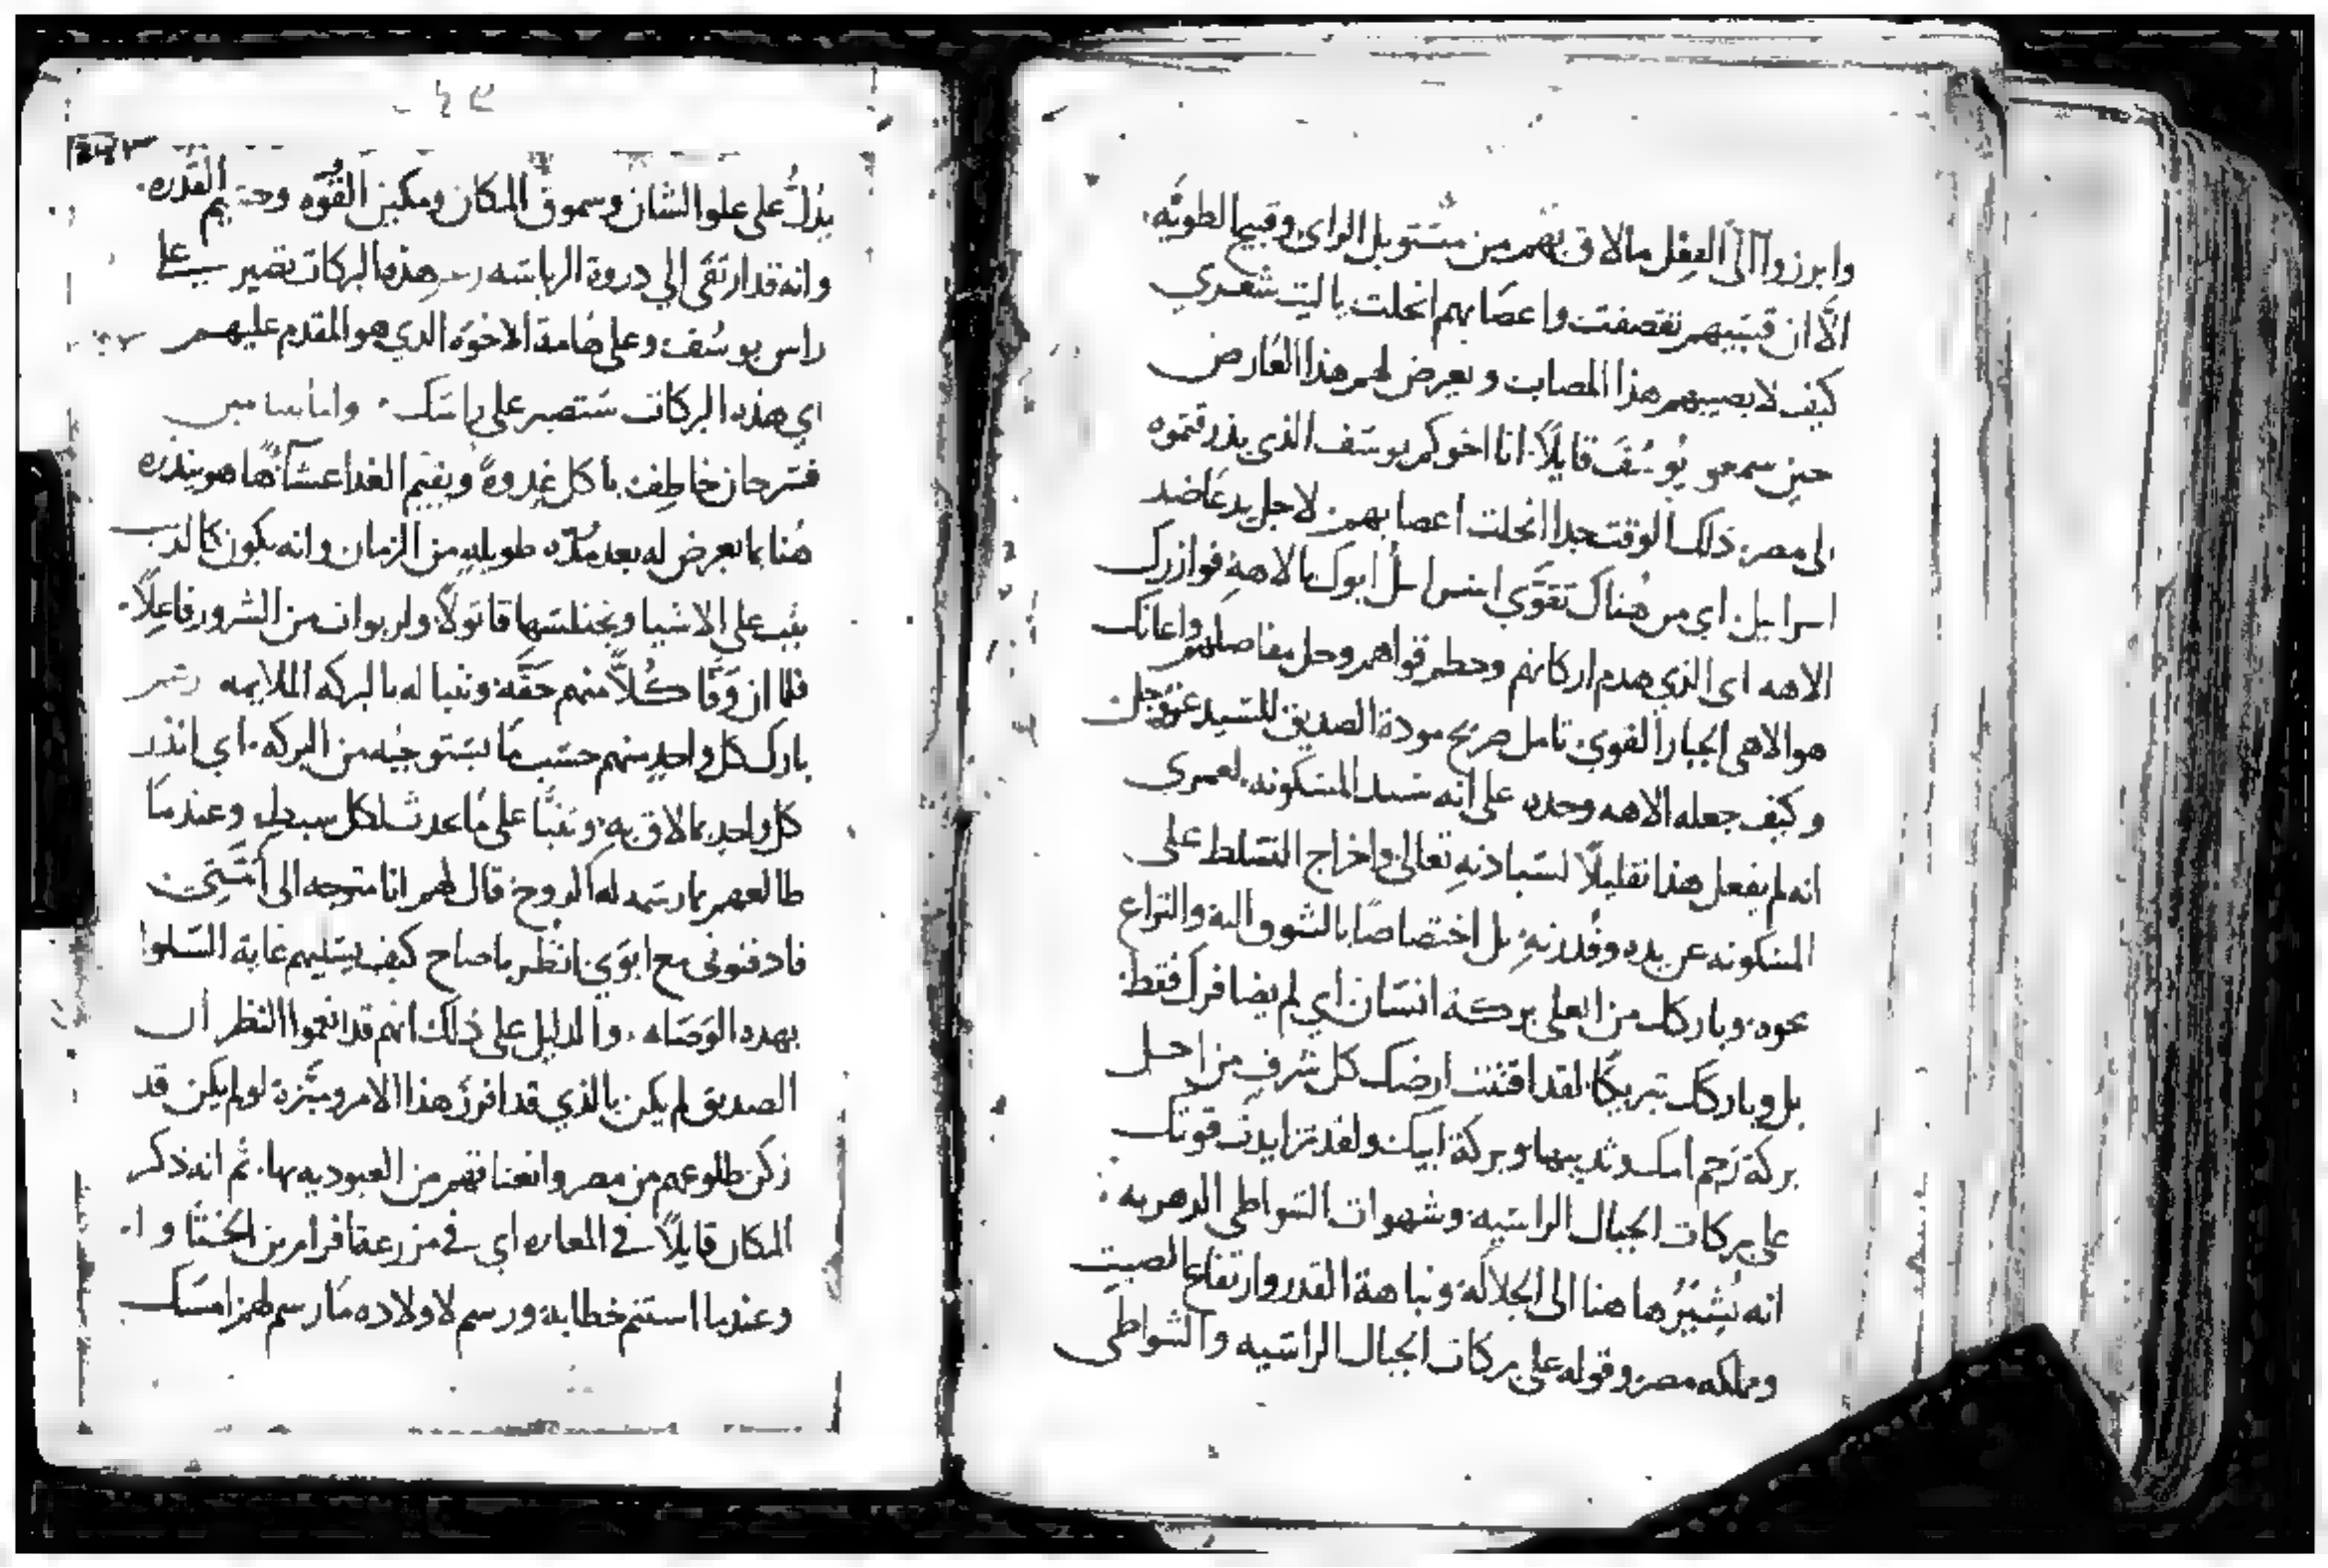 وابرزوا الى الفعل مالاق بهم من مشتوبل الراى وقبيح الطويّه.
الّا ان قسيهم تقصفت واعصابهم انحلت ياليت شعري
كيف لا يصيبهم هذا المصاب ويعرض لهم هذا العارض
حين سمعو يُوسُف قايلًا انا اخوكم يوسف الذي بذرقتموه
الى مصر، ذلك الوقت جدا انحلت اعصابهم. لاجل يد عاضد
اسراييل. اي من هُناك تقوّي اسراييل ابوك بالاهه فوازرك
الاهه اى الذي هدم اركانهم وحطم قواهم وحل مفاصلهم واعانك
هو الاهى الجبار القوي. تامل صريح مودة الصديق للسيد عز وجل
وكيف جعله الاهه وحده على انه سيد المسكونه لعمري
انه لم يفعل هذا تقليلًا لسيادته تعالى واخراج التسلط على
المسكونه عن يده وقدرته، بل اختصاصًا بالشوق اليه والنزاع
نحوه. وباركك من اعلى بركة انسان اي لم يضافرك فقط
بل وباركك تبريكًا لقد اقتنت ارضك كل شرف من اجل
بركة رحم امك وثدييها وبركة ابيك ولقد تزايدت قوتك
على بركات الجبال الراسيه وشهوات الشواطى الدهريه:
انه يُشيرُ هاهنا الى الجلالة ونباهة القدر وارتفاع الصيت
ومملكه مصر وقوله على بركات الجبال الراسيه والشواطى
يدُلّ على علو الشان وسموق المكان ومكين القُوّه القَدره.
وانه قد ارتقى الي دروة الرياسه هذه البركات تصير على
راس يوسُف وعلى هامة الاخوَه الذي هو المقدم عليهم
اي هذه البركات ستصير على راسك. واما بنيامين
فسرحان خاطف ياكل غدوةً ويقيم الغدا عشآءً هاهو ينذره
هُنا بما يعرض له بعد مُدّه طويله من الزمان وانه يكون كالديب
يثب على الاشيا ويختلسها قاتولًا ولربوات من الشرور فاعلًا.
فلما ان وَفّا كُلًّا منهم حقّه وتنبا له بالبركه الملايمه
بارك كل واحد منهم حسَب ما يستوجبه من البركه. اي انذر
كل واحد بمالاق به وتنبّا على ما يحدث لكل سبط وعندما
طالعهم بما رسمه له الروح قال لهم انا متوجه الى اُمّتي
فادفنونى مع ابوَي انظر ياصاح كيف يسليهم غاية السلوا
بهذه الوَصَاه. والدليل على ذلك انهم قد انعموا النظر ان
الصديق لم يكن بالذي قد افرز هذا الامر وميّزه لو لم يكن قد
زكن طلوعهم من مصر وانعتاقهم من العبوديه بها. ثم انه ذكر
المكان قايلًا في المغاره اي في مزرعة افرامرين
وعندما استتم خطابه ورسم لاولاده مارسم لهم امسك